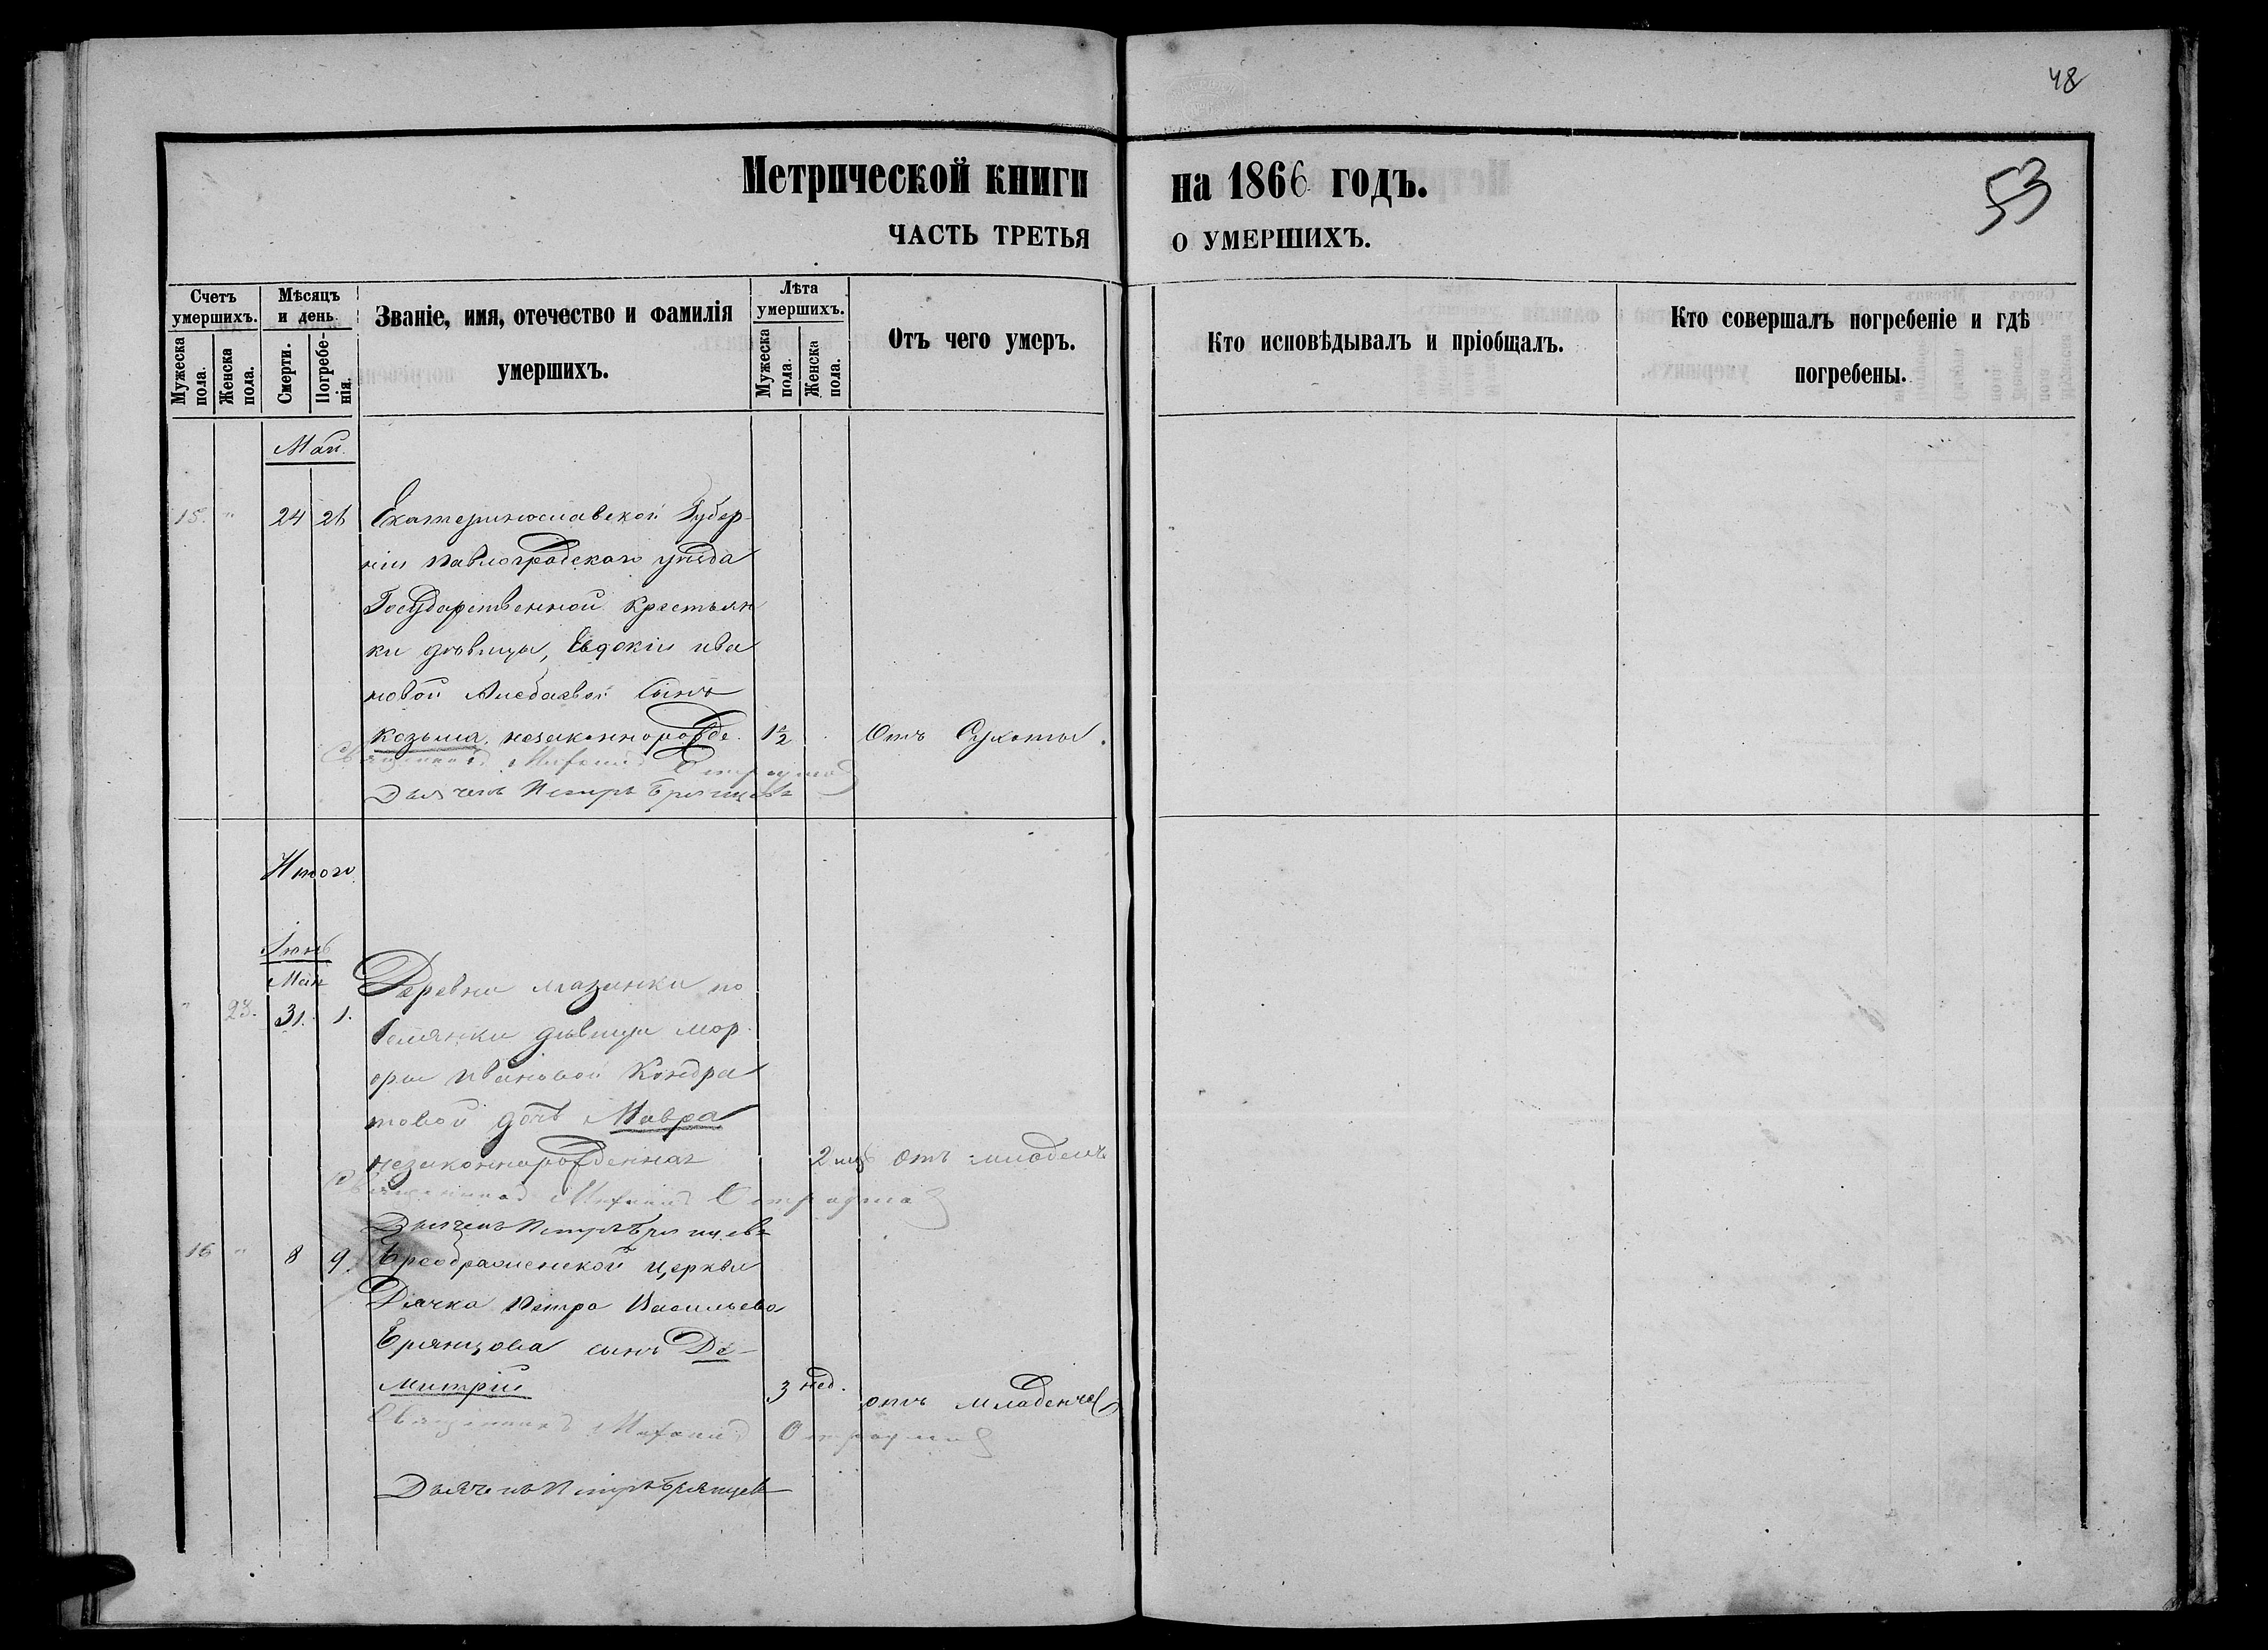 48
53
Метрической книги на 1866 годъ.
ЧАСТЬ ТРЕТЬЯ О УМЕРШИХЪ.
Счетъ умершихъ.
Мужеска пола.
Женска пола.
Мѣсяцъ и день.
Смерти.
Погребенія.
Званіе, имя, отечество и фамилія
умершихъ.
Лѣта умершихъ.
Мужеска пола.
Женска пола.
Отъ чего умеръ.
Кто исповѣдывалъ и пріобщалъ.
Кто совершалъ погребеніе и гдѣ
погребены.
Май.
15. " 24 26 Екатеринославской Губер-
ніи Павлоградскаго уѣзда
Государственной крестьян
ки дѣвицы, Евдокіи Ива
новой сынъ
Козьма, незаконнорожде. 1½ Отъ Сухоты.
Священникъ Михаилъ
Дьячекъ Петръ Брянцевъ
Итого
Іюнь
Май
" 28. 31. 1. Деревни Мазинки по
селянки дѣвицы Мар
ѳы Ивановой Кондра
товой дочь Мавра
незаконнорожденная 2 мц Отъ младенч
Священникъ Михаилъ
Дьячекъ Петръ Брянцевъ
16 " 8 9. Преображенской церкви
Дячка Петра Васильева
Брянцова сынъ Ди-
митрій 3 нед. отъ младенчес
Священникъ Михаилъ
Дьячекъ Петръ Брянцевъ